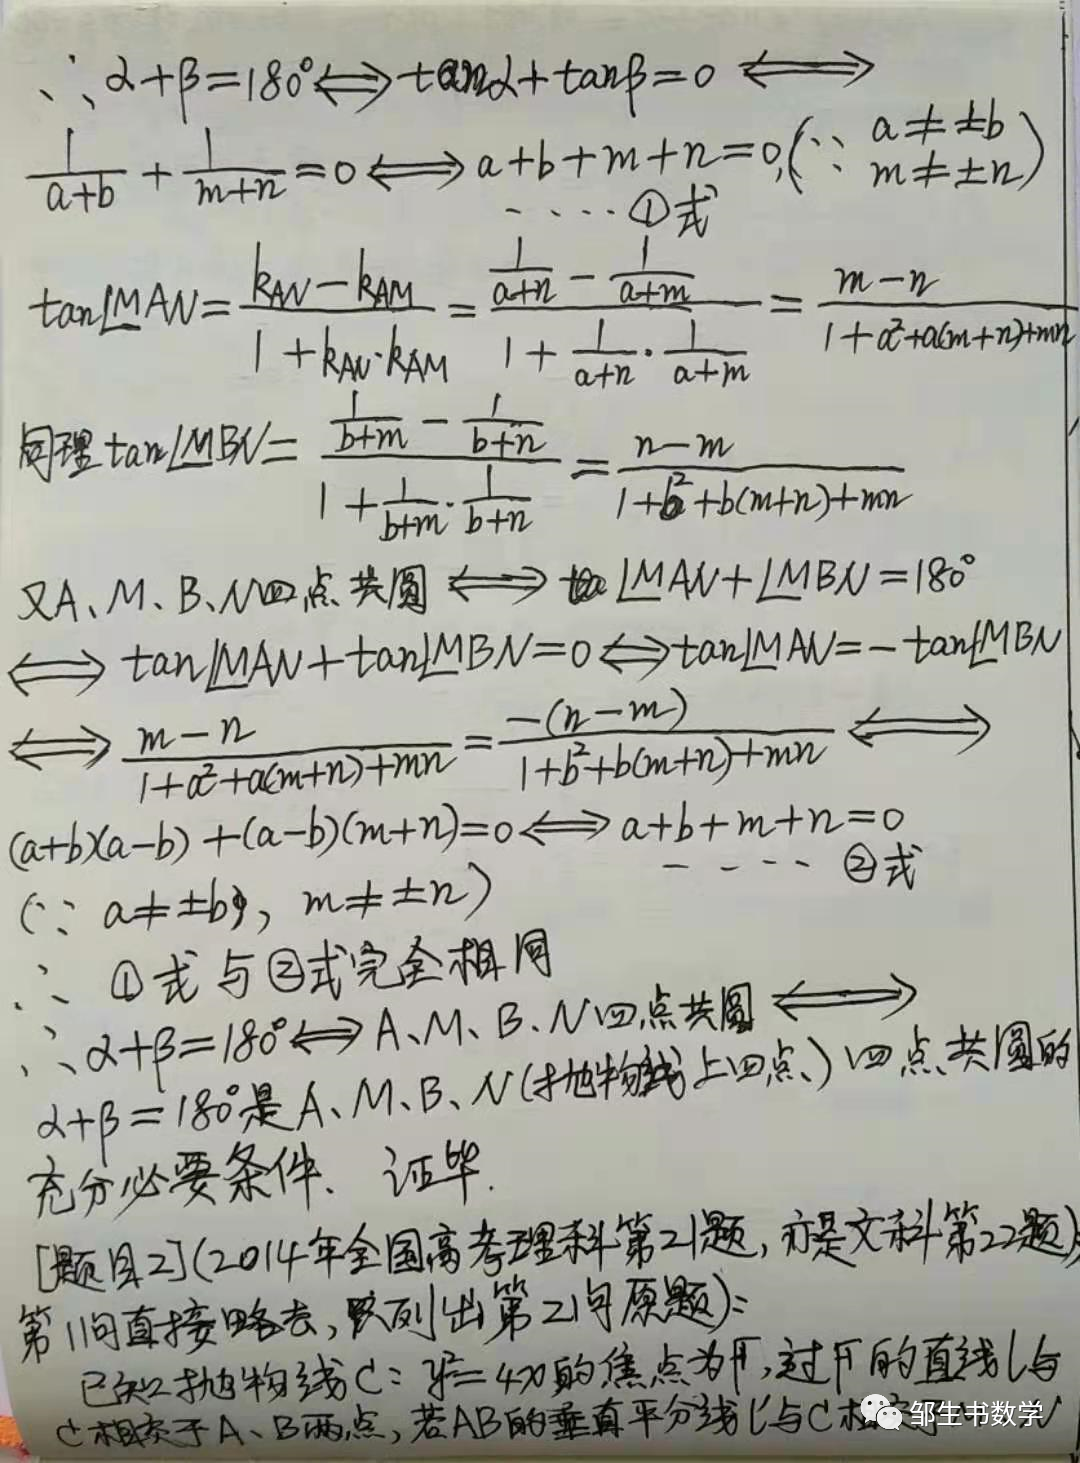 ∴ α+β=180°⟺tanα+tanβ=0 ⟺
1/(a+b) + 1/(m+n) =0⟺ a+b+m+n=0,(∵ a≠±b m≠±n)
‥‥①式
tan∠MAN= (kAN−kAM)/(1+kAN·kAM) = (1/(a+n) − 1/(a+m))/(1+ 1/(a+n) · 1/(a+m)) = (m−n)/(1+a²+a(m+n)+mn)
同理tan∠MBN= (1/(b+m) − 1/(b+n))/(1+ 1/(b+m) · 1/(b+n)) = (n−m)/(1+b²+b(m+n)+mn)
又A、M、B、N四点共圆 ⟺ ∠MAN+∠MBN=180°
⟺ tan∠MAN+tan∠MBN=0⟺tan∠MAN=−tan∠MBN
⟺ (m−n)/(1+a²+a(m+n)+mn) = −(n−m)/(1+b²+b(m+n)+mn) ⟺
(a+b)(a−b)+(a−b)(m+n)=0⟺ a+b+m+n=0
‥‥②式
(∵ a≠±b, m≠±n)
∴ ①式与②式完全相同
∴ α+β=180°⟺ A、M、B、N四点共圆 ⟺
α+β=180°是A、M、B、N(抛物线上四点)四点共圆的
充分必要条件、证毕.
[题目2](2014年全国高考理科第21题,亦是文科第22题),
第1问直接略去,只列出第2问原题):
已知抛物线C:y²=4x的焦点为F,过F的直线l与
C相交于A、B两点,若AB的垂直平分线l'与C相
邹生书数学